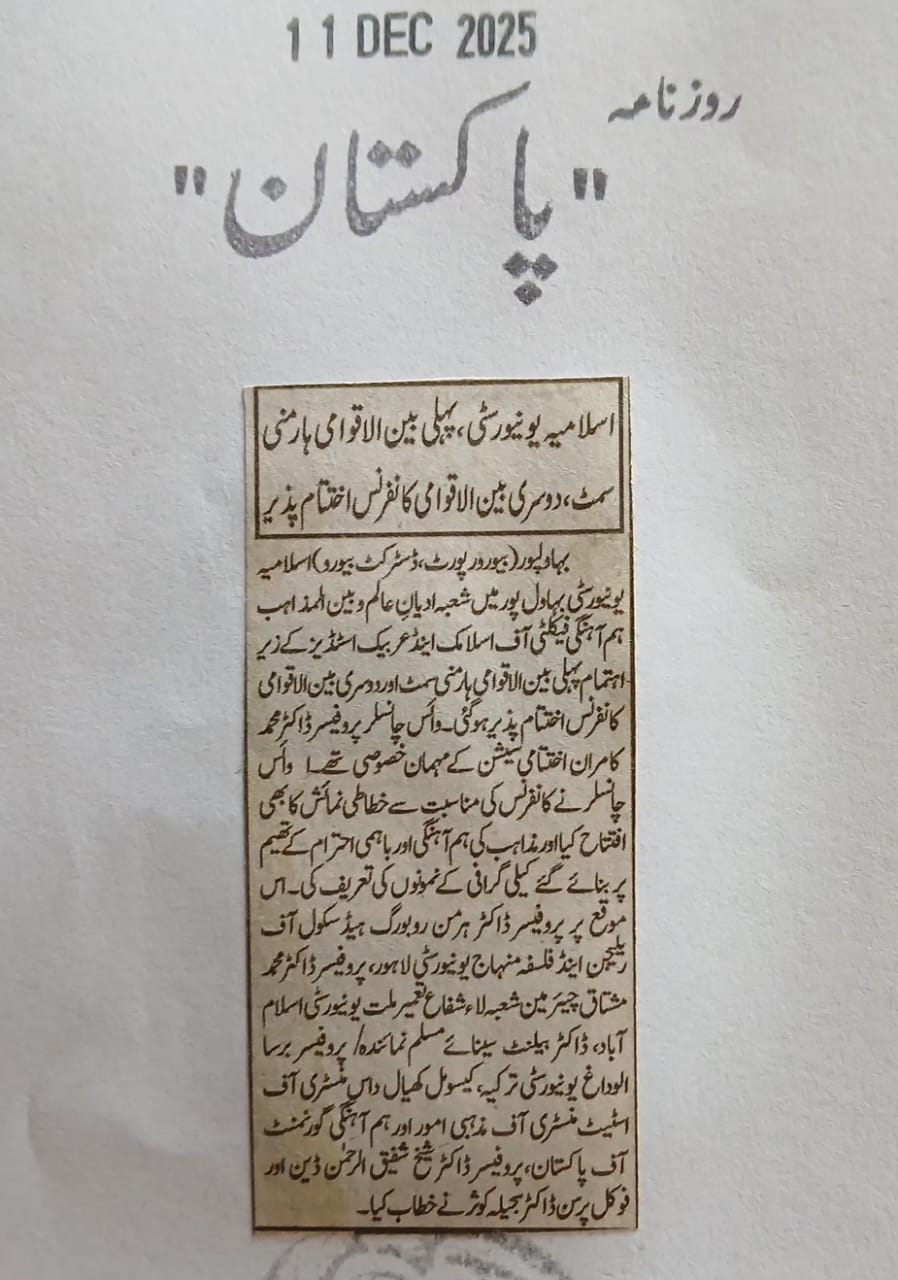 11 DEC 2025
روزنامہ
"پاکستان"
اسلامیہ یونیورسٹی، پہلی بین الاقوامی ہارمنی
سمٹ، دوسری بین الاقوامی کانفرنس اختتام پذیر
بہاولپور (بیورورپورٹ، ڈسٹرکٹ بیورو) اسلامیہ
یونیورسٹی بہاول پور میں شعبہ ادیان عالم و بین المذاہب
ہم آہنگی فیکلٹی آف اسلامک اینڈ عربیک اسٹڈیز کے زیر
اہتمام پہلی بین الاقوامی ہارمنی سمٹ اور دوسری بین الاقوامی
کانفرنس اختتام پذیر ہوگئی۔ وائس چانسلر پروفیسر ڈاکٹر محمد
کامران اختتامی سیشن کے مہمان خصوصی تھے۔ ا وائس
چانسلر نے کانفرنس کی مناسبت سے خطاطی نمائش کا بھی
افتتاح کیا اور مذاہب کی ہم آہنگی اور باہمی احترام کے تھیم
پر بنائے گئے کیلی گرافی کے نمونوں کی تعریف کی۔ اس
موقع پر پروفیسر ڈاکٹر ہرمن روبورگ ہیڈ سکول آف
ریلیجن اینڈ فلسفہ منہاج یونیورسٹی لاہور، پروفیسر ڈاکٹر محمد
مشتاق چیئرمین شعبہ لاء شفاع تعمیر ملت یونیورسٹی اسلام
آباد، ڈاکٹر بیلنٹ سینائے مسلم نمائندہ/ پروفیسر برسا
الوداغ یونیورسٹی ترکیہ، کیسومل کھیال داس منسٹری آف
اسٹیٹ منسٹری آف مذہبی امور اور ہم آہنگی گورنمنٹ
آف پاکستان، پروفیسر ڈاکٹر شیخ شفیق الرحمٰن ڈین اور
فوکل پرسن ڈاکٹر سجیلہ کوثر نے خطاب کیا۔